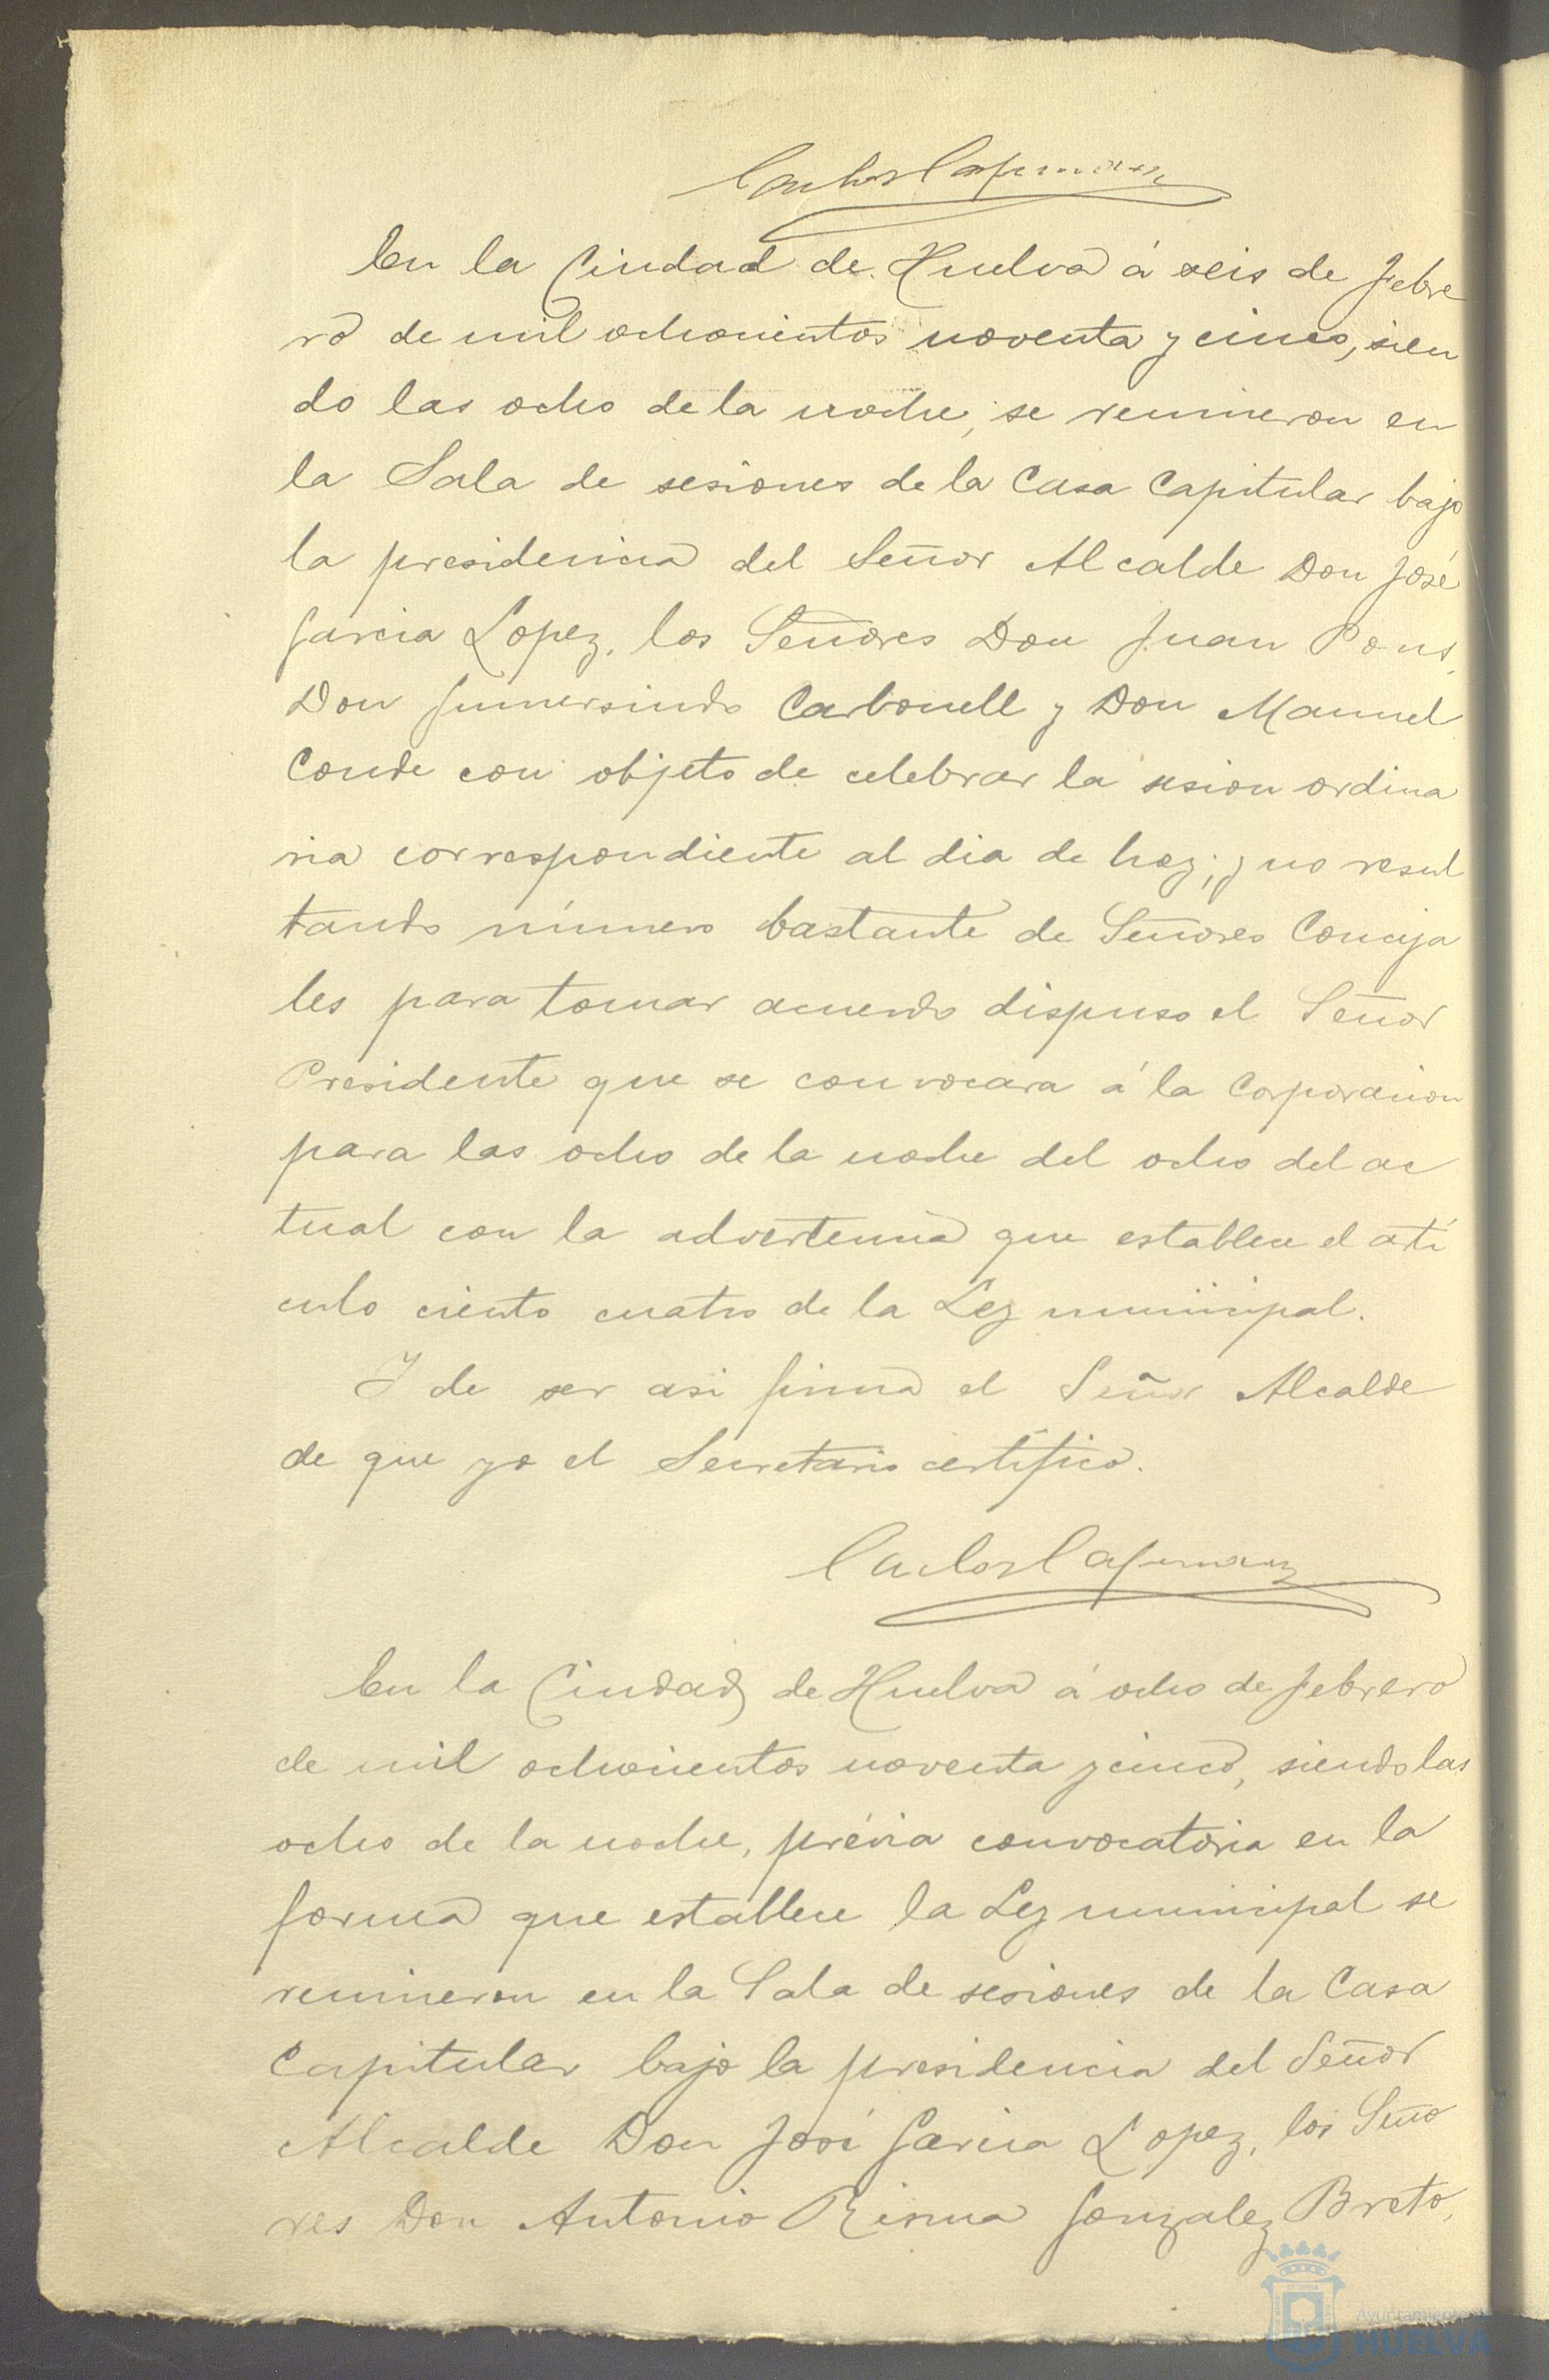 En la Ciudad de Huelva á seis de Febre
ro de mil ochocientos noventa y cinco, sien
do las ocho de la noche, se reunieron en
la Sala de sesiones de la Casa Capitular bajo
la presidencia del Señor Alcalde Don José
Garcia Lopez, los Señores Don Juan Pons,
Don Gumersindo Carbonell y Don Manuel
Conde con objeto de celebrar la sesion ordina
ria correspondiente al dia de hoy; y no resul
tando número bastante de Señores Conceja
les para tomar acuerdo dispuso el Señor
Presidente que se convocara á la Corporacion
para las ocho de la noche del ocho del ac
tual con la advertencia que establece el arti
culo ciento cuatro de la Ley municipal.
Y de ser asi firma el Señor Alcalde
de que yo el Secretario certifico.
Carlos
En la Ciudad de Huelva á ocho de Febrero
de mil ochocientos noventa y cinco, siendo las
ocho de la noche, prévia convocatoria en la
forma que establece la Ley municipal se
reunieron en la Sala de sesiones de la Casa
Capitular bajo la presidencia del Señor
Alcalde Don José Garcia Lopez, los Seño
res Don Antonio Gonzalez
Ayuntamiento de
HUELVA